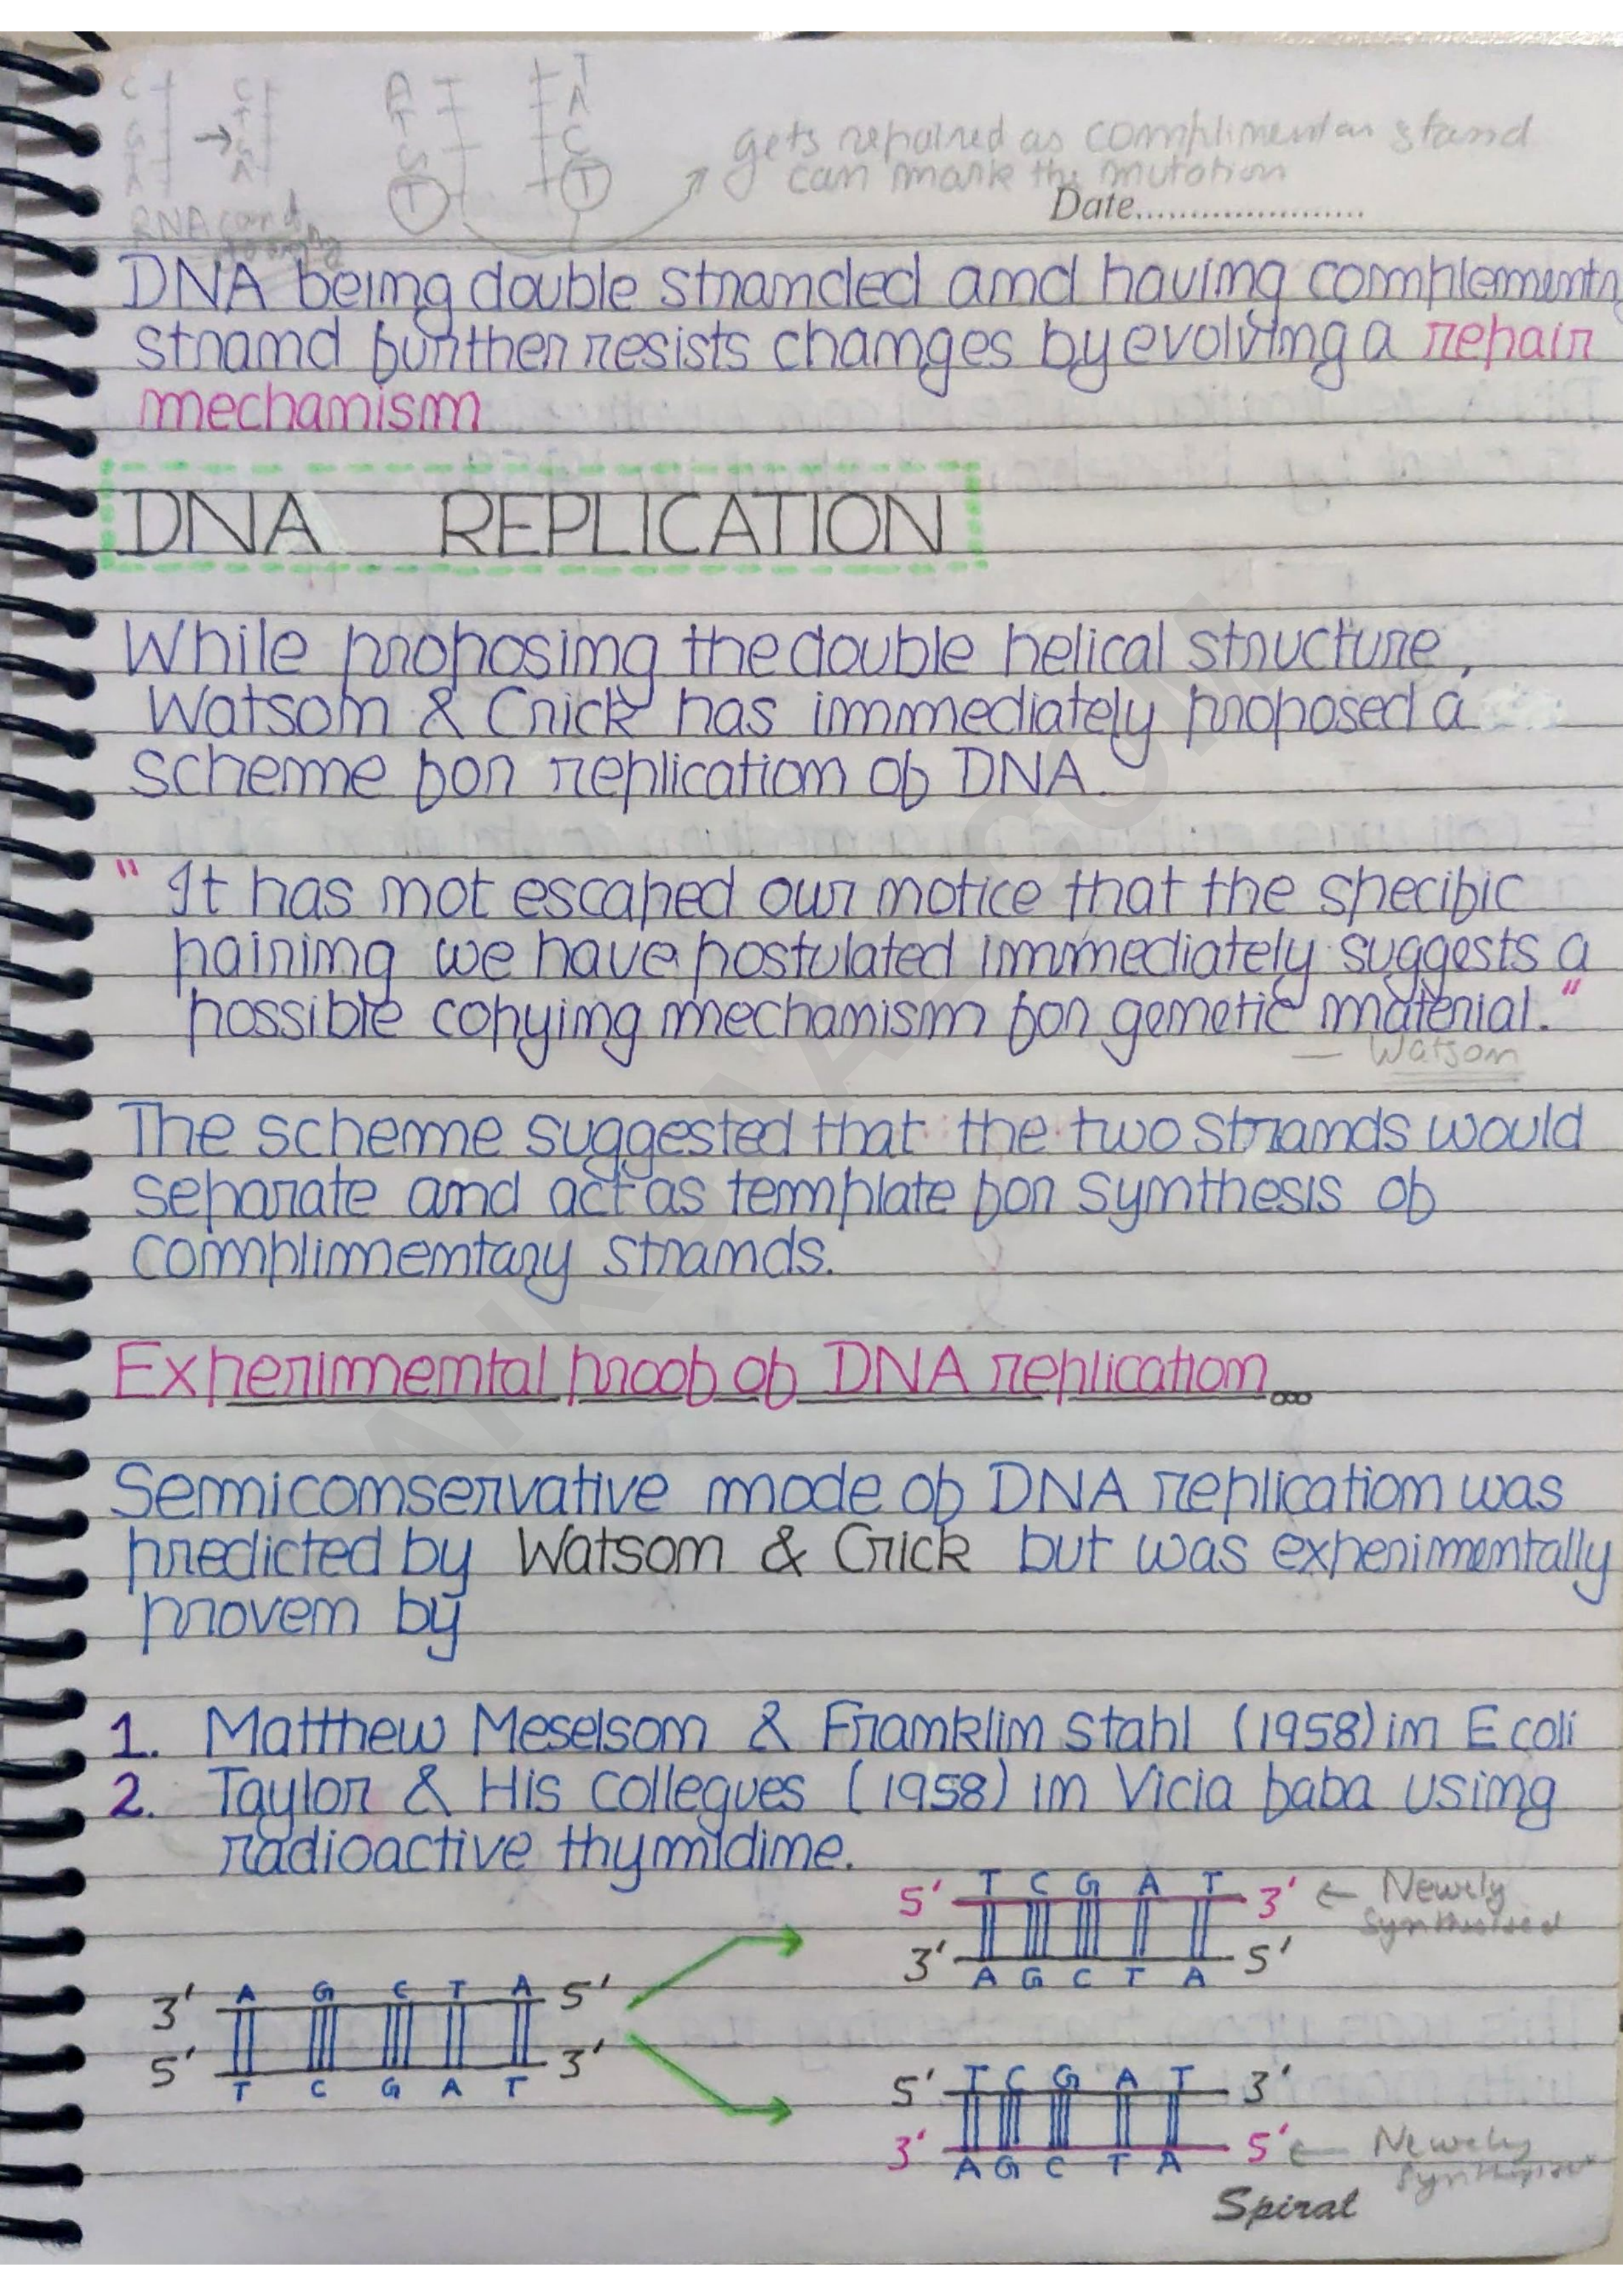 C C A T T
G → T T A
A G G C
A T T
RNA
gets repaired as complimentar stand
can mark the mutation
Date......................
DNA being double stranded and having complementry
strand further resists changes by evolving a repair
mechanism
DNA REPLICATION
While proposing the double helical structure,
Watson & Crick has immediately proposed a
scheme for replication of DNA.
" It has not escaped our notice that the specific
pairing we have postulated immediately suggests a
possible copying mechanism for genetic material."
— Watson
The scheme suggested that the two strands would
separate and act as template for synthesis of
complimentary strands.
Experimental proof of DNA replication...
Semiconservative mode of DNA replication was
predicted by Watson & Crick but was experimentally
proven by
1. Matthew Meselson & Franklin Stahl (1958) in E coli
2. Taylor & His Collegues (1958) in Vicia faba using
radioactive thymidine.
T C G A T
5' 3' ← Newly
Synthesised
3' 5'
A G C T A
A G C T A
3' 5'
5' 3'
T C G A T
T C G A T
5' 3'
3' 5' ← Newly
A G C T A
Spiral